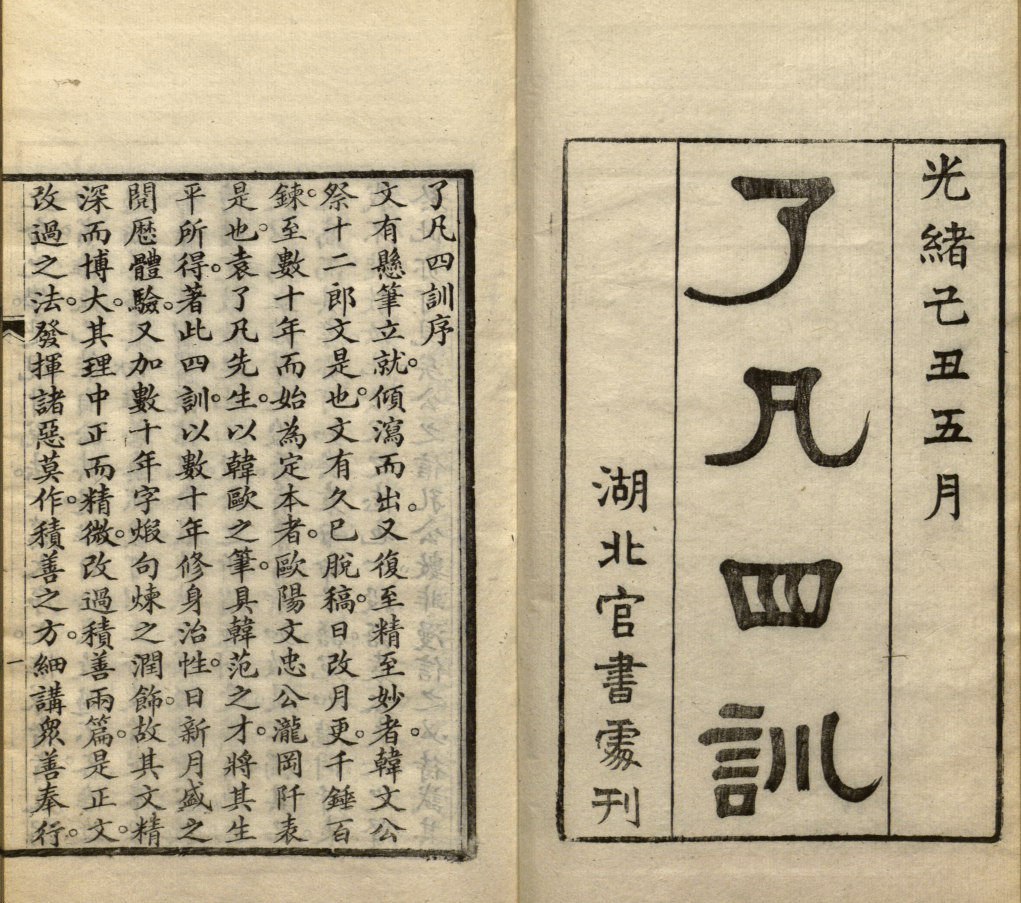 光緒己丑五月
了凡四訓
湖北官書處刊
了凡四訓序
文有懸筆立就。傾瀉而出。又復至精至妙。者韓文公
祭十二郎文是也。文有久已脫稿。日改月更。千錘百
鍊。至數十年而始為定本者。歐陽文忠公瀧岡阡表
是也。袁了凡先生。以韓歐之筆。具韓范之才。將其生
平所得。著此四訓。以數十年修身治性。日新月盛之
閱歷體驗。又加數十年字煅句煉之潤飾。故其文精
深而博大。其理中正而精微。改過積善兩篇。是正文。
改過之法。發揮諸惡莫作。積善之方。細講眾善奉行。
一